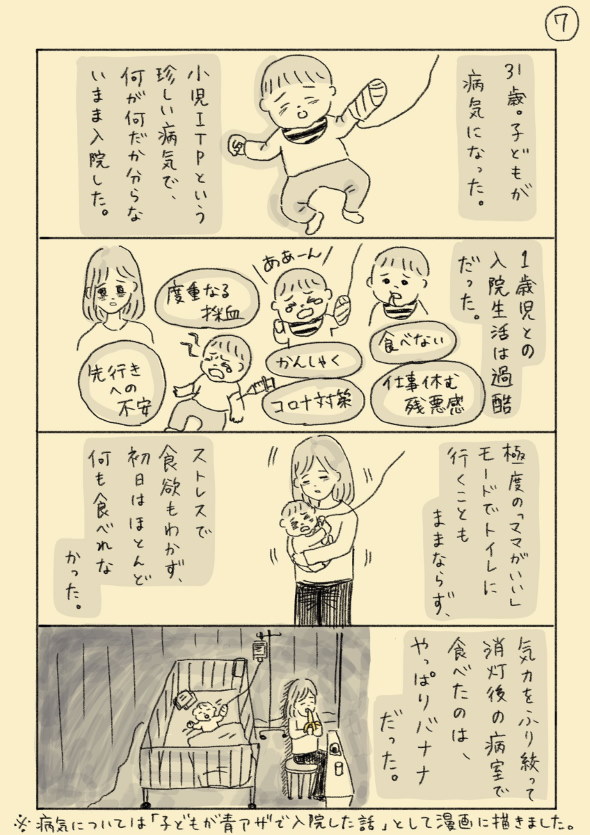 7
31歳。子どもが
病気になった。
小児ITPという
珍しい病気で、
何が何だか分らな
いまま入院した。
1歳児との
入院生活は過酷
だった。
食べない
仕事休む
残悪感
ああーん
かんしゃく
コロナ対策
度重なる
採血
先行き
への
不安
極度の「ママがいい」
モードでトイレに
行くことも
ままならず、
ストレスで
食欲もわかず、
初日はほとんど
何も食べれな
かった。
気力をふり絞って
消灯後の病室で
食べたのは、
やっぱりバナナ
だった。
※病気については「子どもが青アザで入院した話」として漫画に描きました。